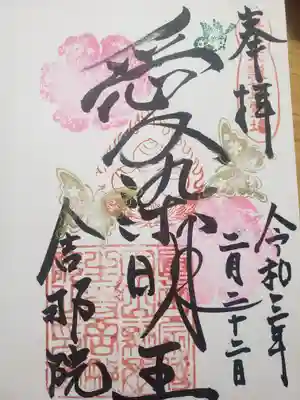 奉拝
令和三年
二月二十二日
愛染明王
舎那院